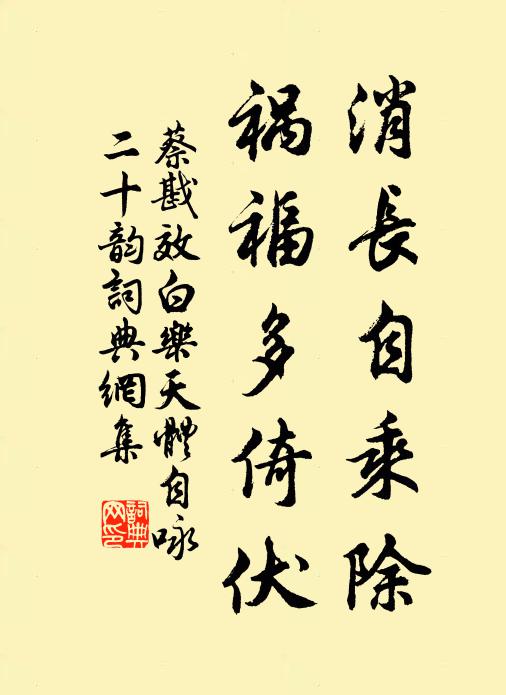 消長自乘除
祸福多倚伏
蔡戡效白樂天體自咏
二十韵詞典網集
詞典网印